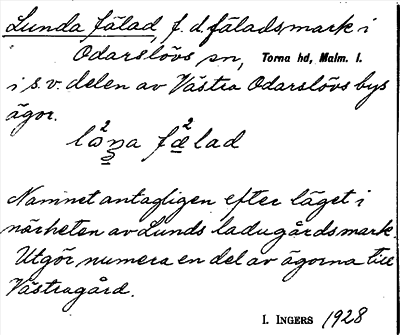 Lunda fälad, f. d. fäladsmark i
Odarslövs sn, Torna hd, Malm. l.
i s. v. delen av Västra Odarslövs bys
ägor.
Namnet antagligen efter läget i
närheten av Lunds ladugårdsmark.
Utgör numera en del av ägorna till
Västragård.
I. INGERS 1928